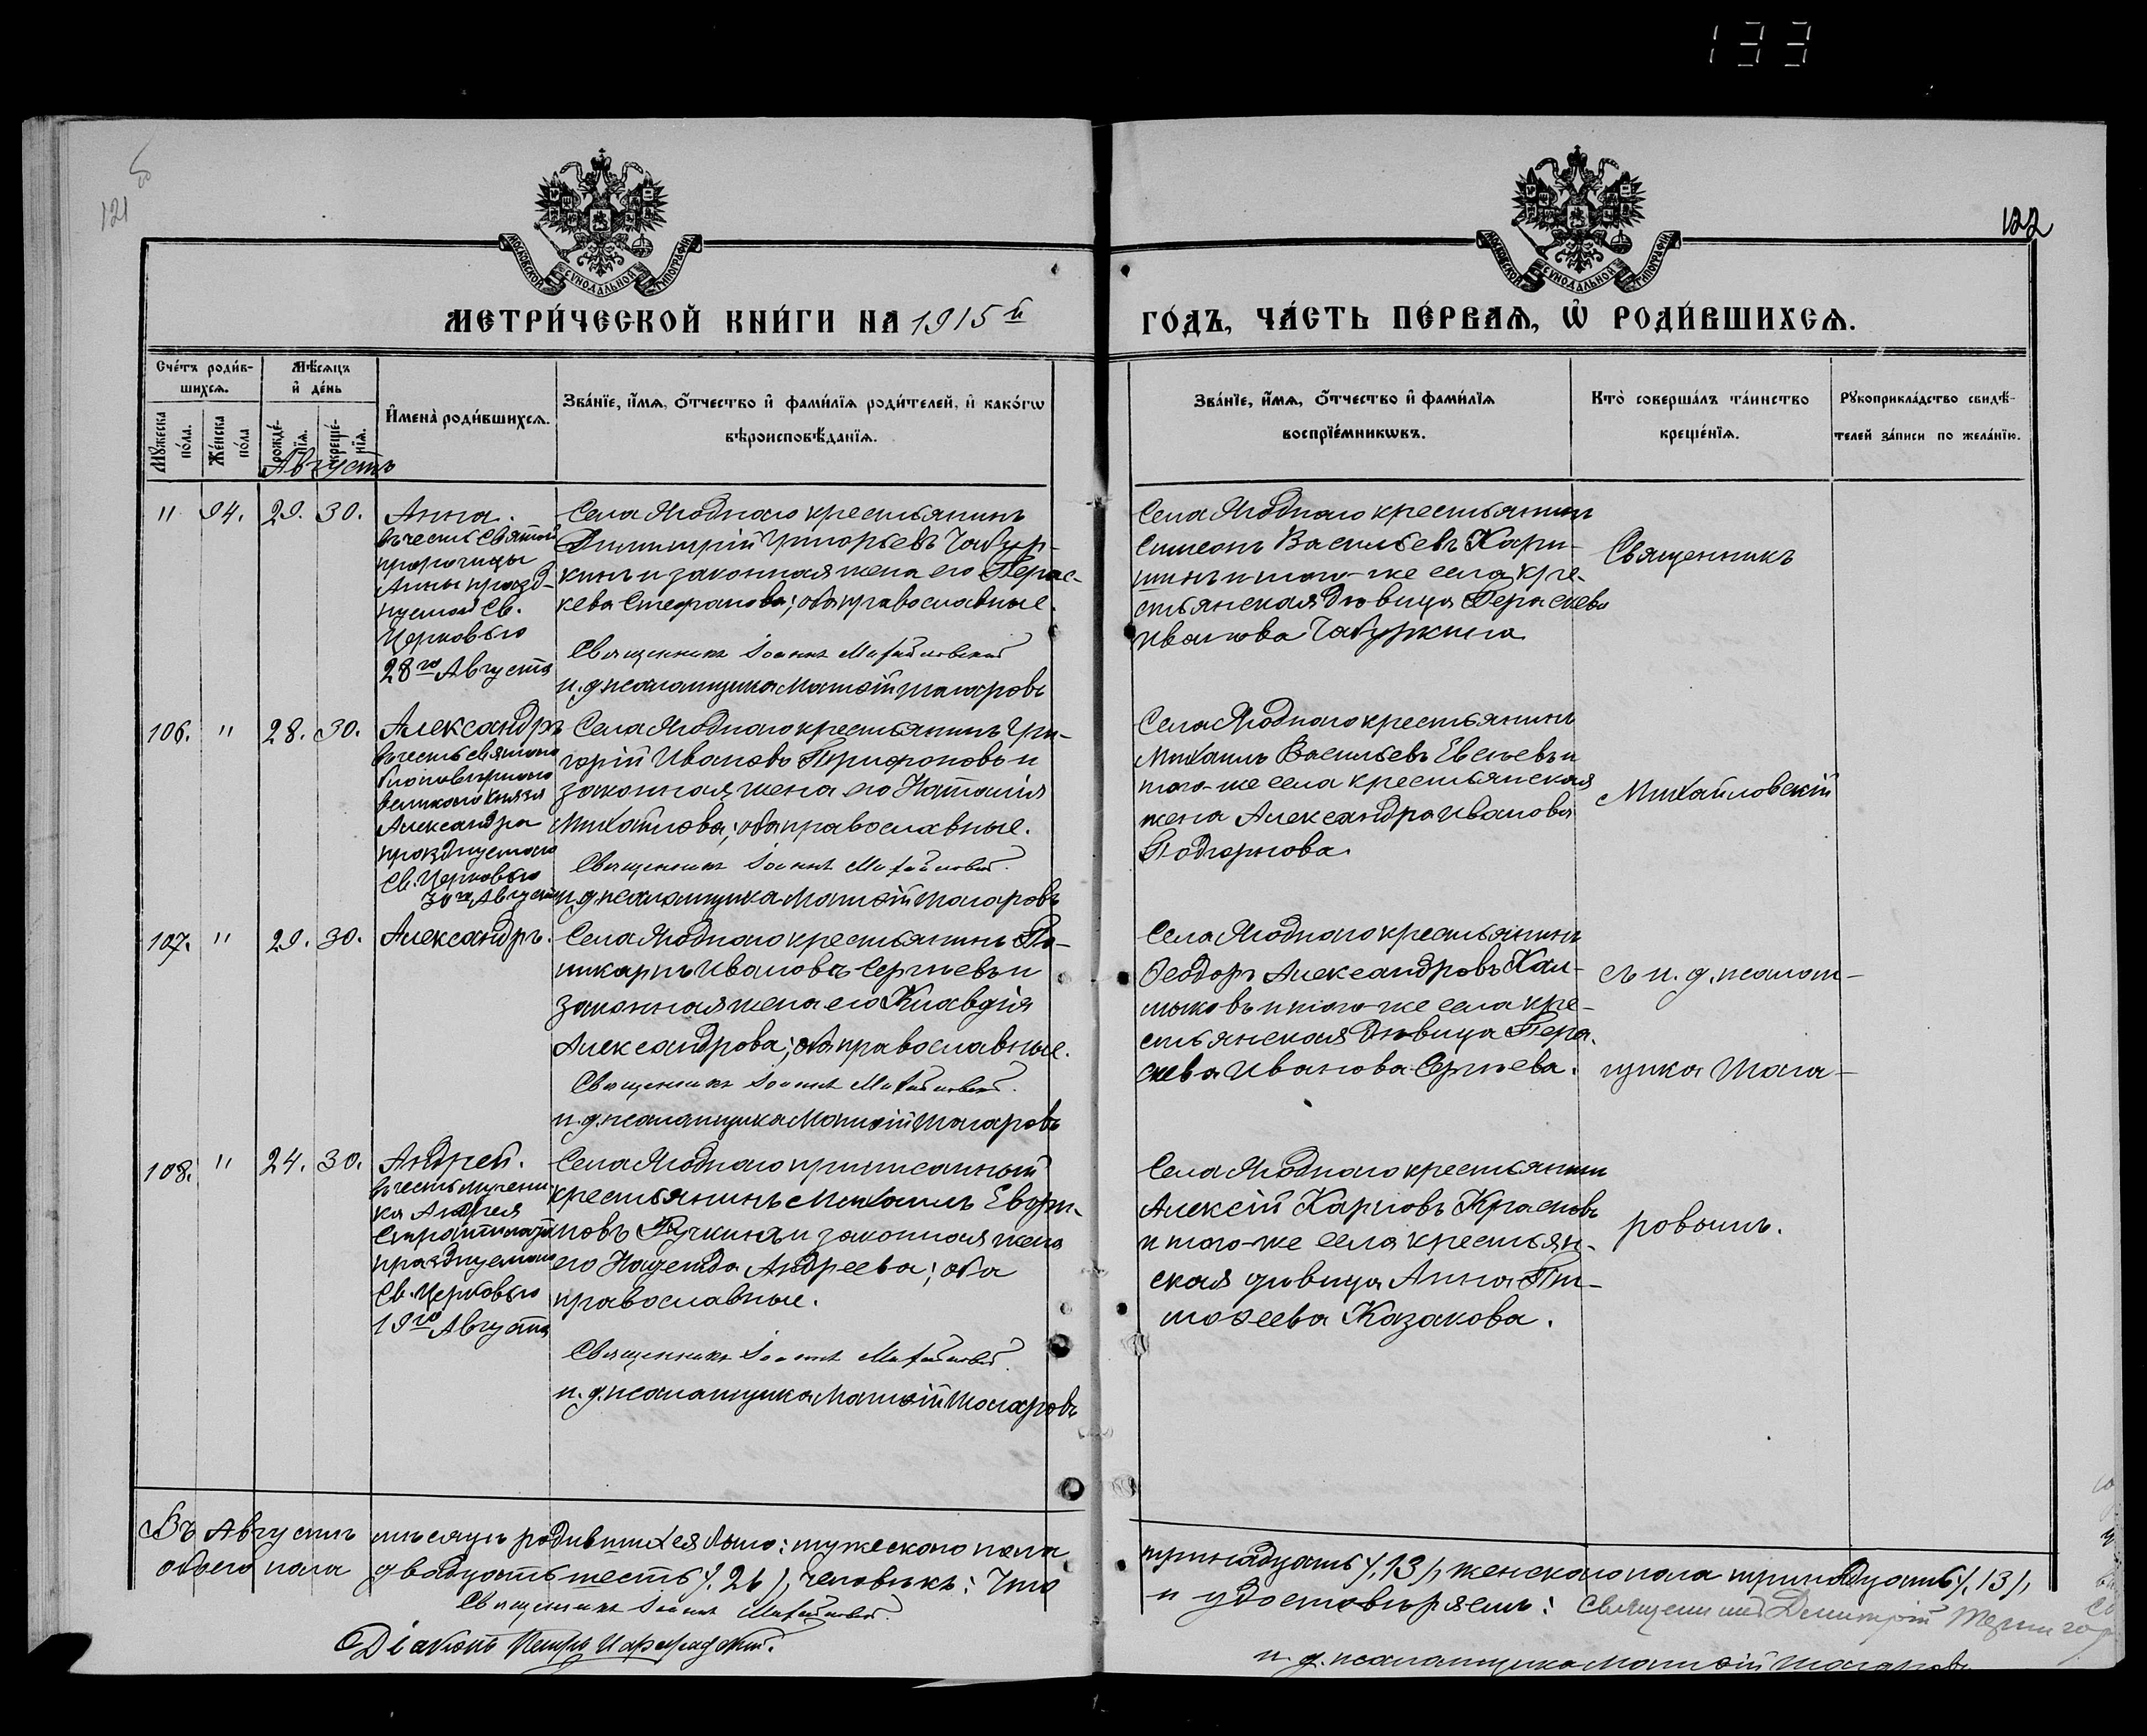 133
121
122
МОСКОВСКОЙ СѴНОДАЛЬНОЙ ТИПОГРАФІИ
МОСКОВСКОЙ СѴНОДАЛЬНОЙ ТИПОГРАФІИ
МЕТРИ́ЧЕСКОЙ КНИ́ГИ НА 1915й
ГО́ДЪ, ЧА́СТЬ ПЕ́РВАѦ, Ѡ҆ РОДИ́ВШИХСѦ.
Сче́тъ роди́в-
шихсѧ.
Мꙋ́жеска по́ла.
Же́нска по́ла
Мѣ́сѧцъ
и҆ де́нь
рожде́-нїѧ.
креще́-нїѧ.
И҆мена̀ роди́вшихсѧ.
Зва́нїе, и҆́мѧ, ѻ҆́тчество и҆ фами́лїѧ роди́телей, и҆ како́гѡ
вѣроисповѣ́данїѧ.
Зва́нїе, и҆́мѧ, ѻ҆́тчество и҆ фами́лїѧ
воспрїе́мникѡвъ.
Кто̀ соверша́лъ та́инство
креще́нїѧ.
Рꙋкоприкла́дство свидѣ́-
телей за́писи по жела́нїю.
Августъ
" 94. 29. 30.
Анна.
въ честь Святой
пророчицы
Анны празд-
нуемой Св.
Церковью
28го Августа
Села Ягоднаго крестьянинъ
Димитрій Григорьевъ Чабур-
кинъ и законная жена его Парас-
кева Стефанова; оба православные.
Священникъ Іоаннъ Михайловскій
и. д. псаломщика Матѳій Шагаровъ
Села Ягоднаго крестьянинъ
Симеонъ Васильевъ Кари-
шинъ и того-же села кре-
стьянская дѣвица Параскева
Иванова Чабуркина
Священникъ
106. " 28. 30.
Александръ
въ честь святаго
благовѣрнаго
великаго князя
Александра
празднуемаго
Св. Церковью
30го Августа
Села Ягоднаго крестьянинъ Гри-
горій Ивановъ Трифоновъ и
законная жена его Наталія
Михайлова; оба православные.
Священникъ Іоаннъ Михайловскій.
и. д. псаломщика Матѳій Шагаровъ
Села Ягоднаго крестьянинъ
Михаилъ Васильевъ Евсѣевъ и
того-же села крестьянская
жена Александра Иванова
Подгорнова.
Михайловскій
107. " 29. 30.
Александръ.
Села Ягоднаго крестьянинъ По-
ликарпъ Ивановъ Сергѣевъ и
законная жена его Клавдія
Александрова; оба православные.
Священникъ Іоаннъ Михайловскій.
и. д. псаломщика Матѳій Шагаровъ
Села Ягоднаго крестьянинъ
Ѳеодоръ Александровъ Кал-
мыковъ и того-же села кре-
стьянская дѣвица Пара-
скева Иванова Сергѣева.
съ и. д. псалом-
щика Шага-
108. " 24. 30.
Андрей.
въ честь мучени-
ка Андрея
Стратилата
празднуемаго
Св. Церковью
19го Августа
Села Ягоднаго приписанный
крестьянинъ Михаилъ
новъ Ручкинъ и законная жена
его Надежда Андреева; оба
православные.
Священникъ Іоаннъ Михайловскій.
и. д. псаломщика Матѳій Шагаровъ
Села Ягоднаго крестьянинъ
Алексѣй Карповъ Красновъ
и того-же села крестьян-
ская дѣвица Анна Ти-
моѳеева Казакова.
ровымъ.
Въ Августѣ мѣсяцѣ родившихся было: мужескаго пола
тринадцать /.13/, женскаго пола тринадцать /.13/,
обоего пола двадцать шесть /.26/, человѣкъ: Что
и удостовѣряемъ: Священникъ Димитрій
Священникъ Іоаннъ Михайловскій.
Діаконъ Петръ
и. д. псаломщика Матѳій Шагаровъ